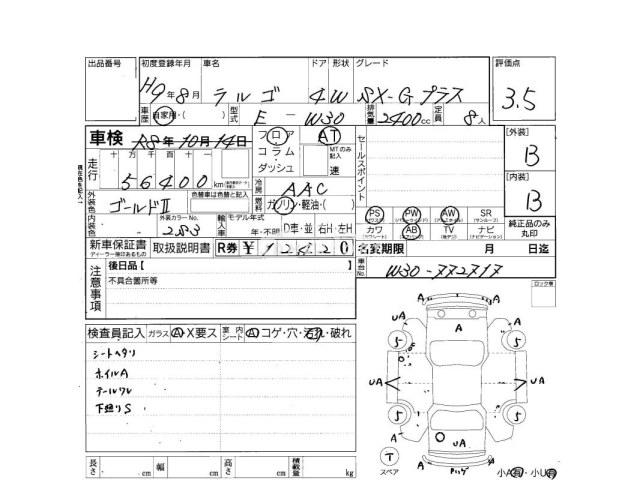 出品番号 初度登録年月 車名 ドア 形状 グレード 評価点
H9年8月 ラルゴ 4W SX-Gプラス 3.5
車歴 自家用・( ) 型式 E-W30 排気量 2400cc 定員 8人
車検 R8年10月14日 フロア・コラム・ダッシュ AT MTのみ記入 速 セールスポイント [外装] B
走行 十 万 千 百 十 一
56400 km
冷房 AAC [内装] B
外装色 色替車は色替と記入
ゴールドⅡ 燃料 ガソリン・軽油・( )
PS PW AW SR
(パワステ) (パワーウィンド) (アルミホイル) (サンルーフ)
内装色 外装カラーNo. 283 輸入車 モデル年式 年・不明 D車・並 右H・左H
カワ AB TV ナビ
(エアバッグ) (ナビゲーション)
純正品のみ丸印
新車保証書 取扱説明書 R券 ¥ 名変期限 月 日迄
ディーラー捺印あるもの
車台No. W30-772717
注意事項 後日品【 】
不具合箇所等
ロック有
検査員記入 ガラス A X要ス 室内シート A コゲ・穴・汚れ・破れ
シートヘタリ
ホイルA
テールワレ
下廻りS
A A
UA A A
5 5
UA UA
5 5
A UA A
T
スペア
長さ cm 幅 cm 高さ cm 積載量 kg
小A有・小U有